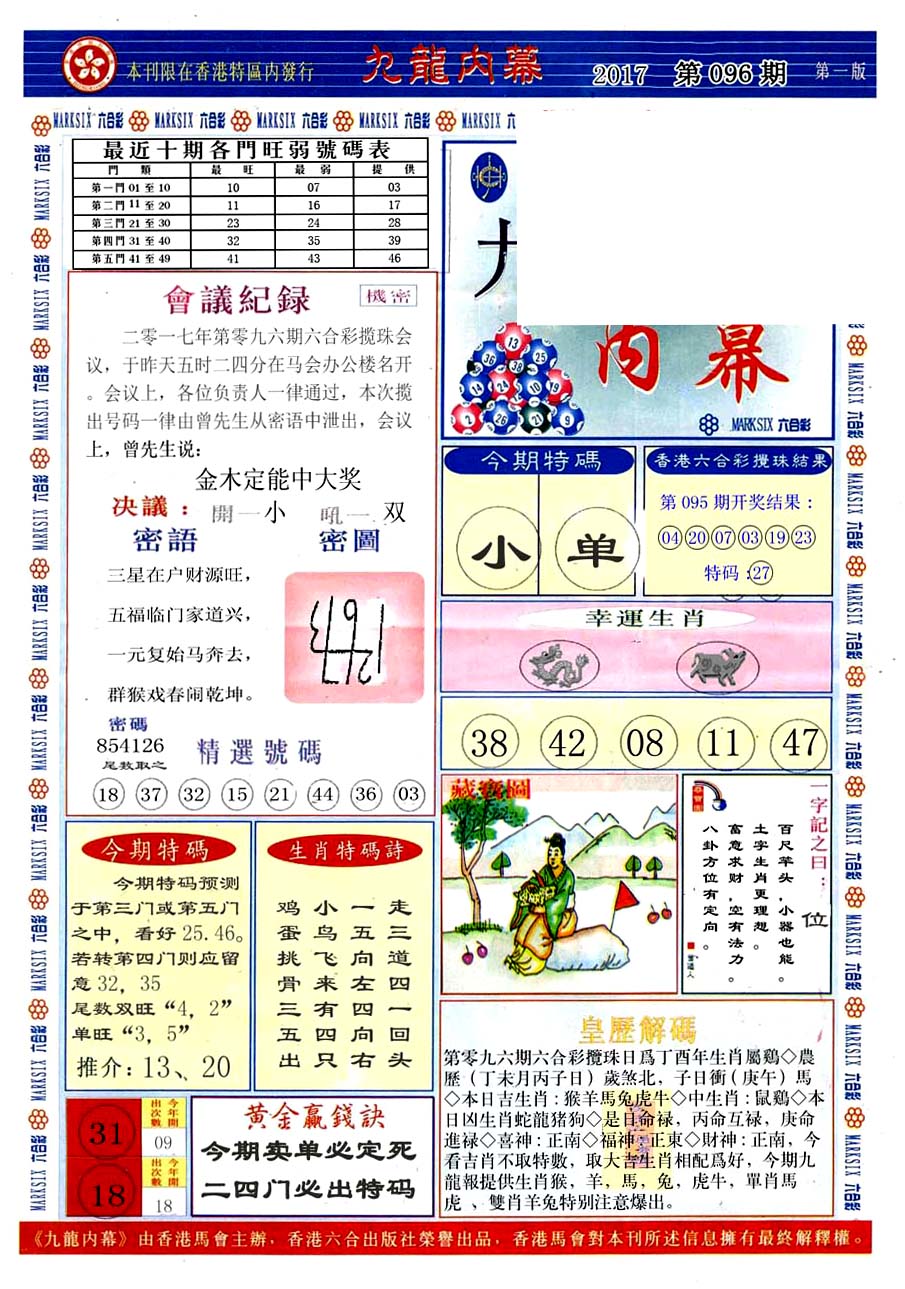 本刊限在香港特區內發行
九龍內幕
2017 第096期
第一版
MARKSIX 六合彩 MARKSIX 六合彩 MARKSIX 六合彩 MARKSIX 六合彩 MARKSIX 六
最近十期各門旺弱號碼表
門類 最旺 最弱 提供
第一門01至10 10 07 03
第二門11至20 11 16 17
第三門21至30 23 24 28
第四門31至40 32 35 39
第五門41至49 41 43 46
會議紀録
機密
二零一七年第零九六期六合彩揽珠会
议，于昨天五时二四分在马会办公楼名开
。会议上，各位负责人一律通过，本次揽
出号码一律由曾先生从密语中泄出，会议
上，曾先生说：
金木定能中大奖
决議：開一小 吼一双
密語
密圖
三星在户财源旺，
五福临门家道兴，
一元复始马奔去，
群猴戏春闹乾坤。
密碼
854126
尾数取之
精選號碼
18 37 32 15 21 44 36 03
内幕
13
36 25
38
14 24 10 19
2 26 21 9
MARKSIX 六合彩
今期特碼
小 单
香港六合彩攪珠結果
第095期开奖结果：
04 20 07 03 19 23
特码：27
幸運生肖
38 42 08 11 47
今期特碼
今期特码预测
于第三门或第五门
之中，看好25.46。
若转第四门则应留
意32，35
尾数双旺“4，2”
单旺“3，5”
推介：13、20
生肖特碼詩
鸡小一走
蛋鸟五三
挑飞向道
骨来左四
三有四一
五四向回
出只右头
藏寶圖
一字記之曰：位
百尺竿头，小器也能。
土字生肖更理想。
富意求财，空有法力。
八卦方位有定向。
31
出次數 今年開
09
18
出次數 今年開
18
黄金赢錢訣
今期卖单必定死
二四门必出特码
皇歷解碼
第零九六期六合彩攪珠日爲丁酉年生肖屬鷄◇農
歷（丁未月丙子日）歲煞北，子日衝（庚午）馬
◇本日吉生肖：猴羊馬兔虎牛◇中生肖：鼠鷄◇本
日凶生肖蛇龍猪狗◇是日命禄，丙命互禄，庚命
進禄◇喜神：正南◇福神：正東◇財神：正南，今
看吉肖不取特數，取大吉生肖相配爲好，今期九
龍報提供生肖猴，羊，馬，兔，虎牛，單肖馬
虎、雙肖羊兔特别注意爆出。
《九龍内幕》由香港馬會主辦，香港六合出版社榮譽出品，香港馬會對本刊所述信息擁有最終解釋權。